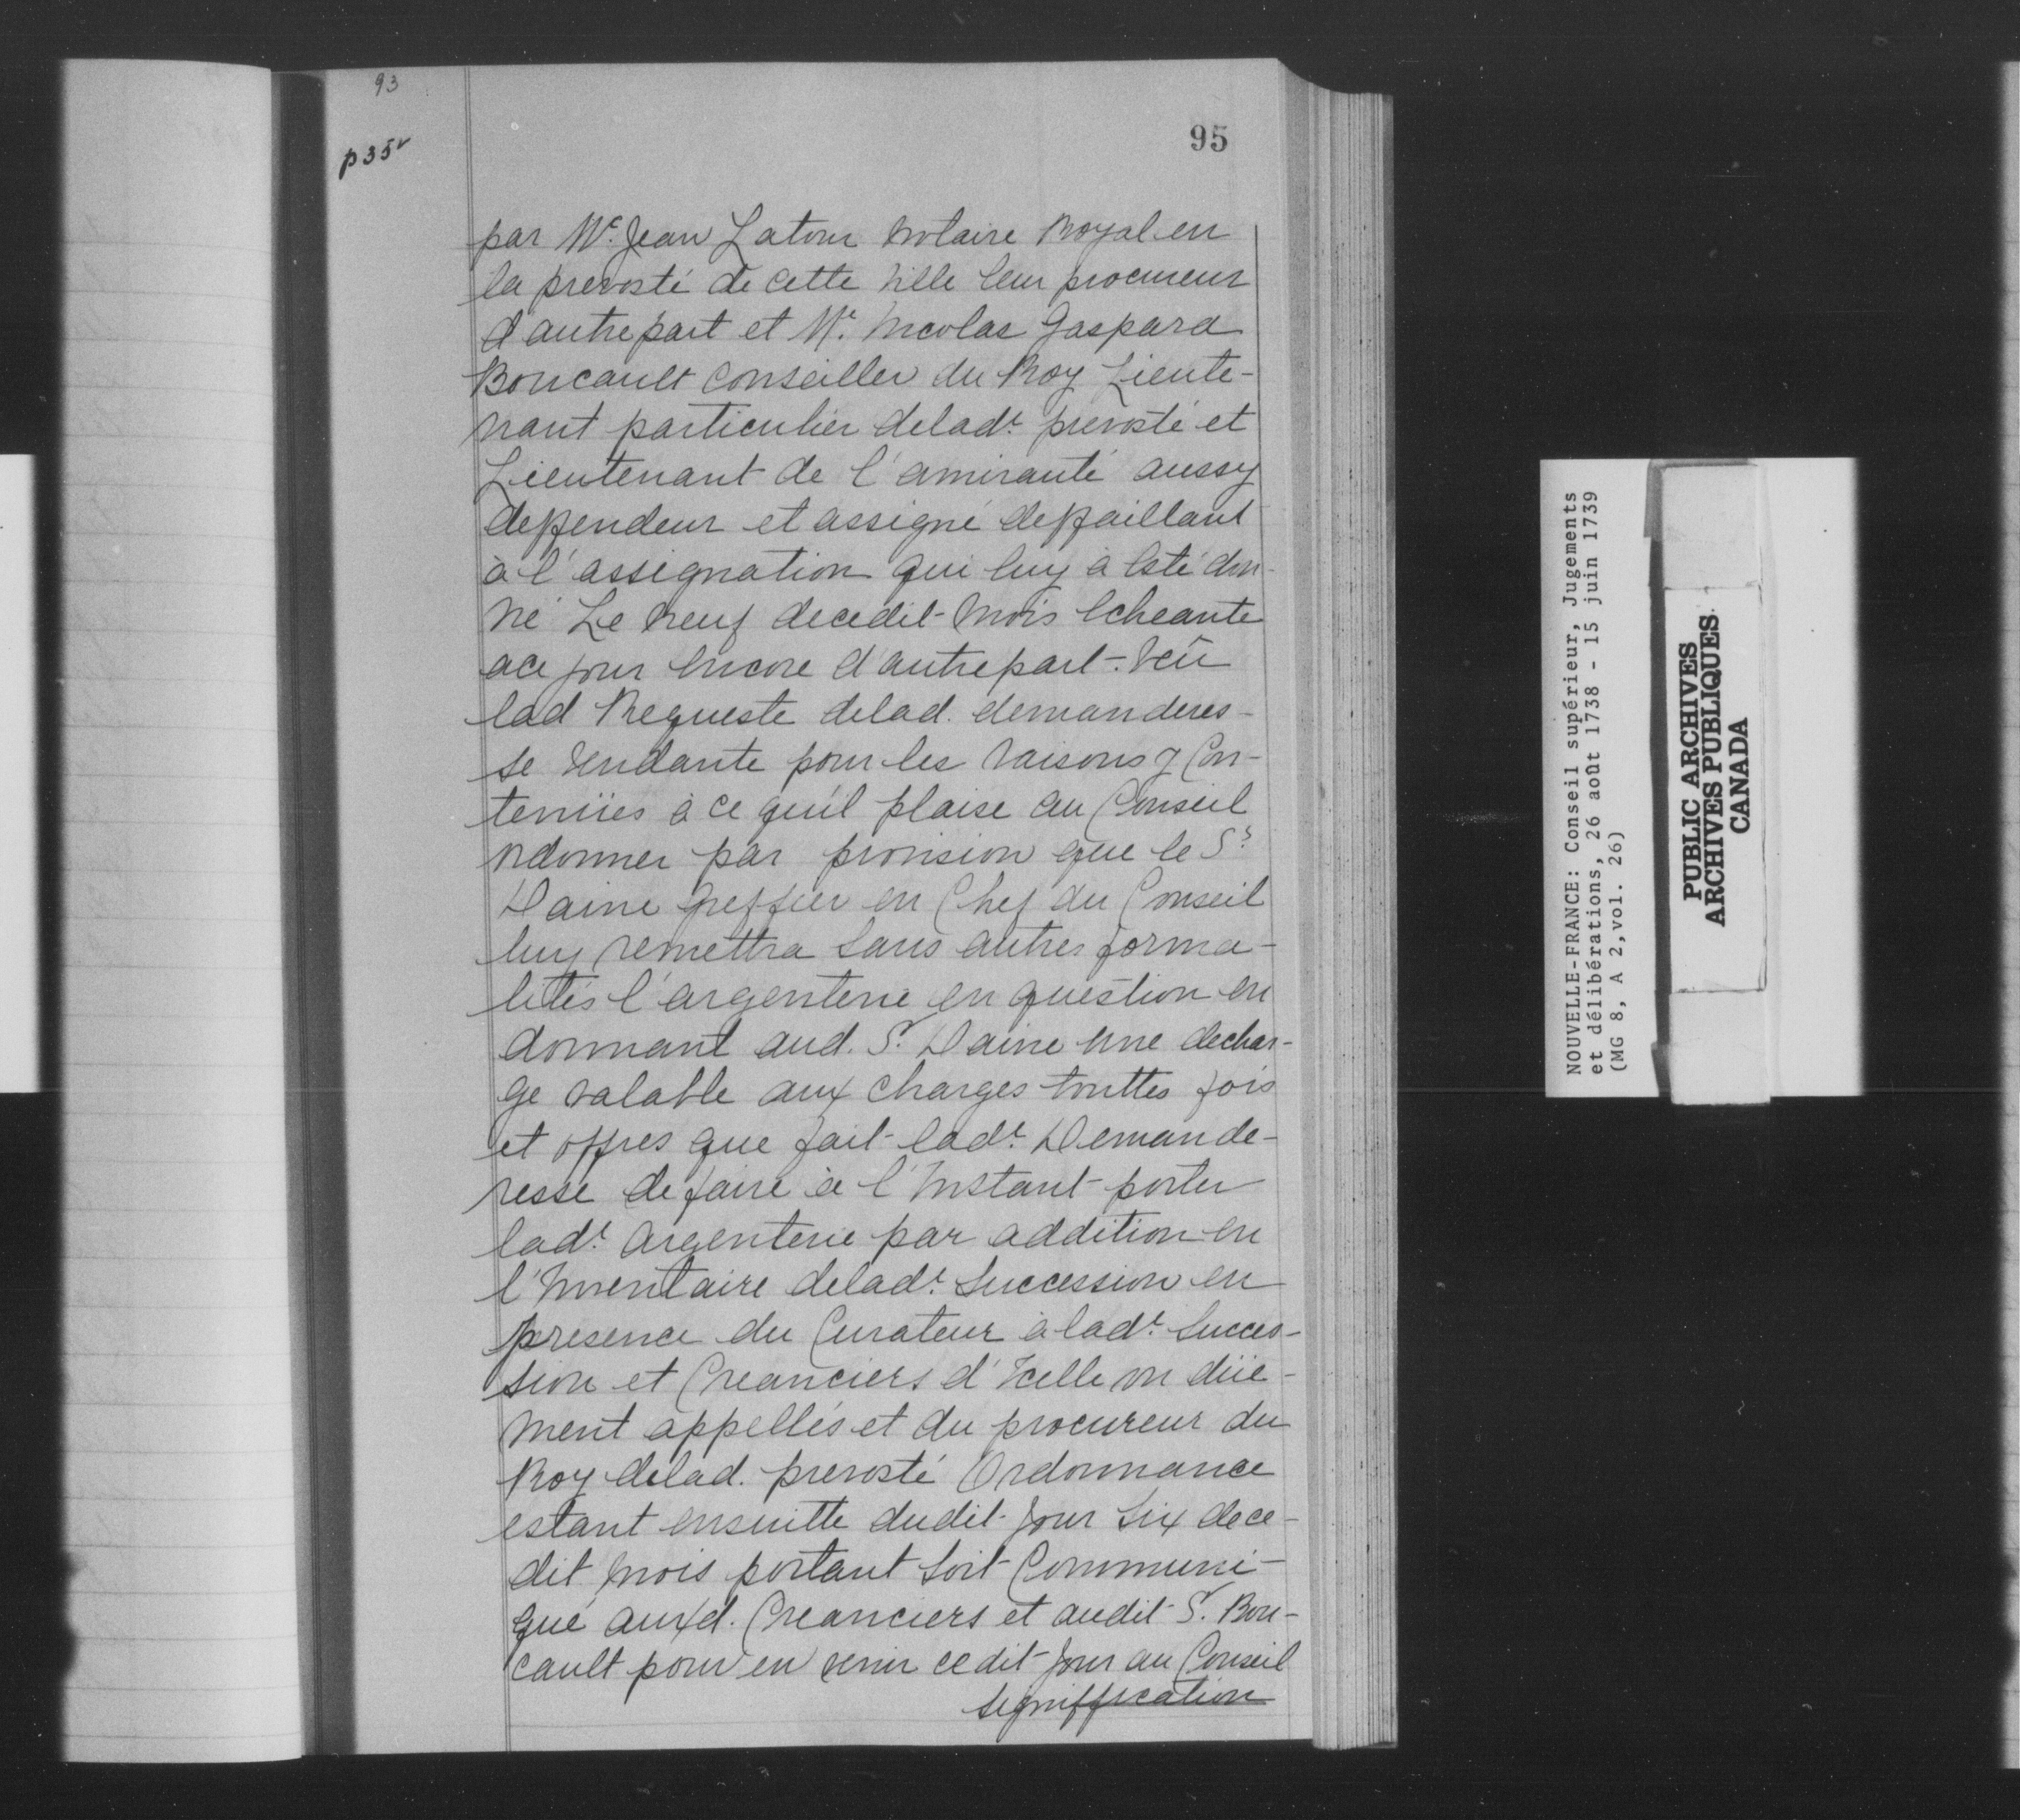 93
p 35v
95
par Me. Jean Latour Notaire Royal en
la prevosté de cette Ville leur procureur
d'autre part et Me. Nicolas Gaspard
Boucault Conseiller du Roy Lieute-
nant particulier delade. prevosté et
Lieutenant de l'amirauté aussy
deffendeur et assigné deffaillant
à l'assignation qui luy à esté don-
né Le Neuf decedit Mois Echeante
ace jour Encore d'autre part. Veû
lad Requeste delad. demanderes-
se tendante pour les raisons y Con-
tenües à ce qu'il plaise au Conseil
ordonner par provision que le Sr.
Daine greffier en Chef du Conseil
luy remettra Sans autres forma-
lités l'argenterie en question en
donnant aud. Sr. Daine une dechar-
ge valable aux charges touttes fois
et offres que fait lade. Demande-
resse de faire à l'Instant porter
lade. Argenterie par addition en
l'Inventaire delade. Succession en
presence du Curateur à lade. Succes-
sion et Creanciers d'Icelle ou düe-
ment appellés et du procureur du
Roy delad. prevosté Ordonnance
estant ensuitte dudit Jour Six dece-
dit mois portant Soit Communi-
qué auxd. Creanciers et audit Sr. Bou-
cault pour en venir cedit Jour au Conseil
Signiffication
NOUVELLE-FRANCE: Conseil supérieur, Jugements
et délibérations, 26 août 1738 - 15 juin 1739
(MG 8, A 2,vol. 26)
PUBLIC ARCHIVES
ARCHIVES PUBLIQUES
CANADA